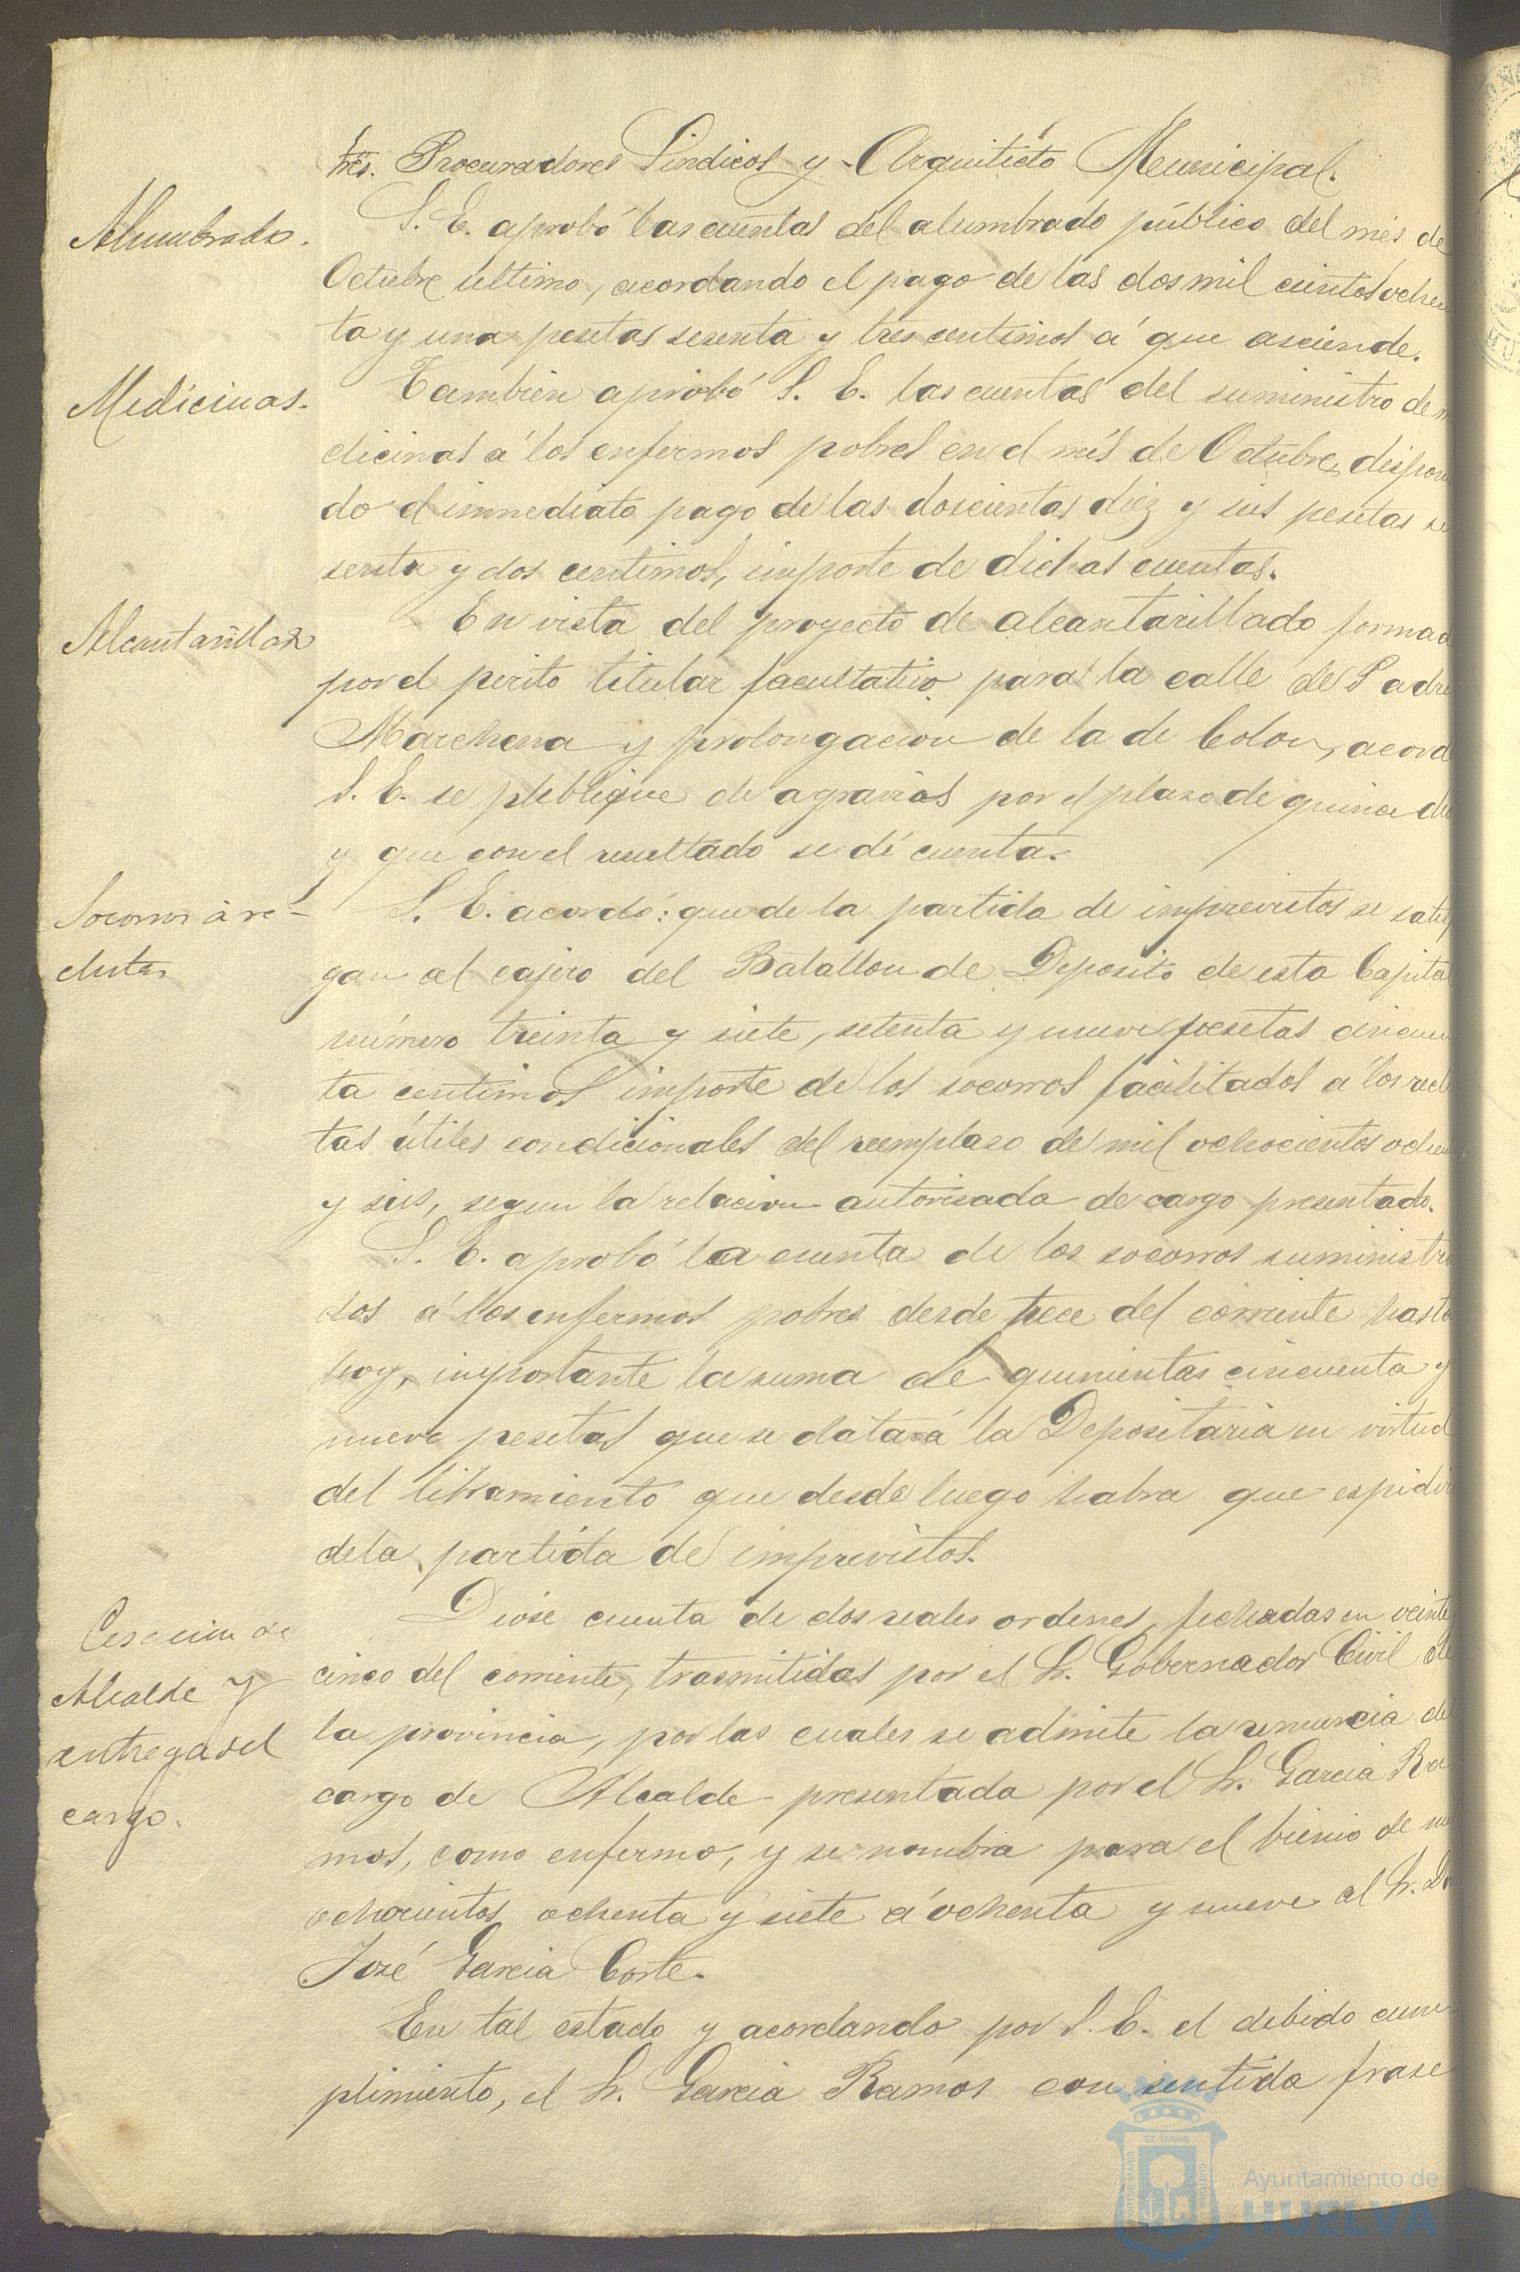 tres. Procuradores Sindicos y Arquitecto Municipal.
Alumbrado.
S. E. aprobó las cuentas del alumbrado público del més de
Octubre último, acordando el pago de las dos mil cientos ochen
ta y una pesetas sesenta y tres centimos á que asciende.
Medicinas.
Tambien aprobó S. E. las cuentas del suministro de m
dicinas á los enfermos pobres en el més de Octubre, dispon
do el inmediato pago de las doscientas diez y seis pesetas se
senta y dos centimos, importe de dichas cuentas.
Alcantarillas
En vista del proyecto de alcantarillado formad
por el perito titular facultativo para la calle del Padre
Marchena y prolongacion de la de Colon, acord
S. E. se publique de agravios por el plazo de quince di
y que con el resultado se dé cuenta.
Socorros á re-
clutas
S. E. acordó: que de la partida de imprevistos se satis
gan al cajero del Batallon de Deposito de esta Capita
número treinta y siete, setenta y nueve pesetas cincuen
ta centimos importe de los socorros facilitados á los reclu
tas útiles condicionales del reemplazo de mil ochocientos ochen
y seis, segun la relacion autorisada de cargo presentado.
S. E. aprobó la cuenta de los socorros suministra
dos á los enfermos pobres desde trece del corriente hasta
hoy, importante la suma de quinientas cincuenta y
nueve pesetas que se datará la Depositaria en virtud
del libramiento que desde luego habra que espidir
de la partida de imprevistos.
Cesacion de
Alcalde y
entrega del
cargo.
Diose cuenta de dos reales ordenes, fechadas en veinte
cinco del corriente, trasmitidas por el Sr. Gobernador Civil de
la provincia, por las cuales se admite la renuncia del
cargo de Alcalde presentada por el Sr. Garcia Ra
mos, como enfermo, y se nombra para el bienio de mi
ochocientos ochenta y siete á ochenta y nueve al Sr. Don
José Garcia Corte.
En tal estado y acordando por S. E. el debido cum-
plimiento, el Sr. Garcia Ramos con sentida frase
Ayuntamiento de
HUELVA